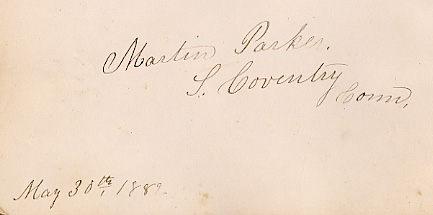 Martin Parker.
S. Coventry
Conn.
May 30th, 1882.